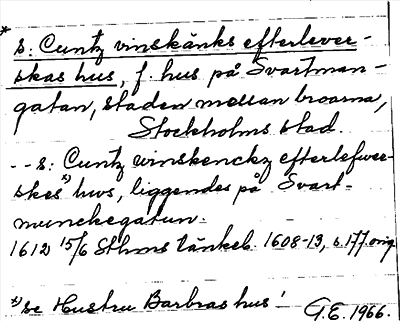 * S: Cuntz vinskänks efterlever-
skas hus, f. hus på Svartman-
gatan, staden mellan broarna,
Stockholms stad.
-- s: Cuntz winskenckz efterlefwer-
skes x) hws, liggendes på Svart-
munckegatun.
1612 15/6 Sthms tänkeb. 1608-13, s. 177 orig
x) se Hustru Barbras hus! G.E. 1966.